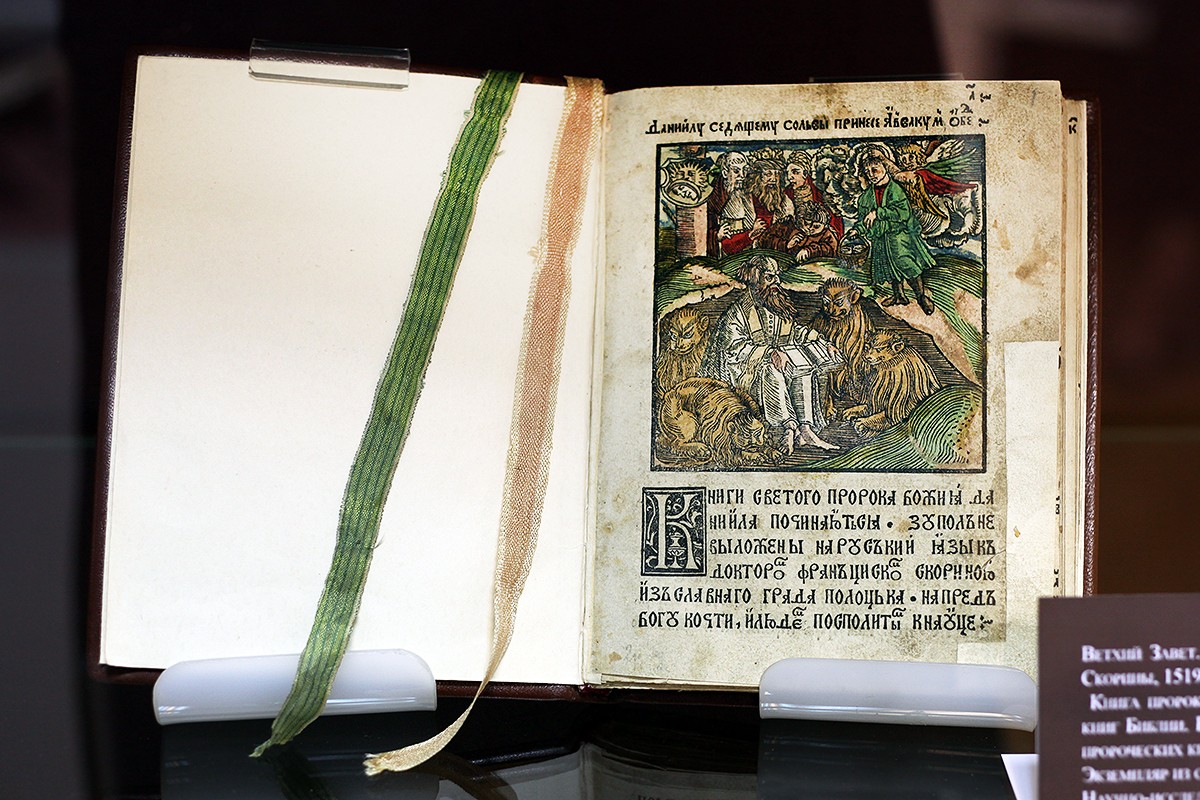 Даниилу седящему сольвы принесе Аввакум Обе
Книги светого пророка божия да
ниила починаються • зупольне
выложены наруський язык
доктором франъциском скориною
изъславнаго града полоцька • напредъ
богу кочти, илюдем посполитым кнауце:
Ветхий Завет.
Скорины, 1519
Книга проро
книг Библии.
пророческих к
Экземпляр из
Научно-иссле